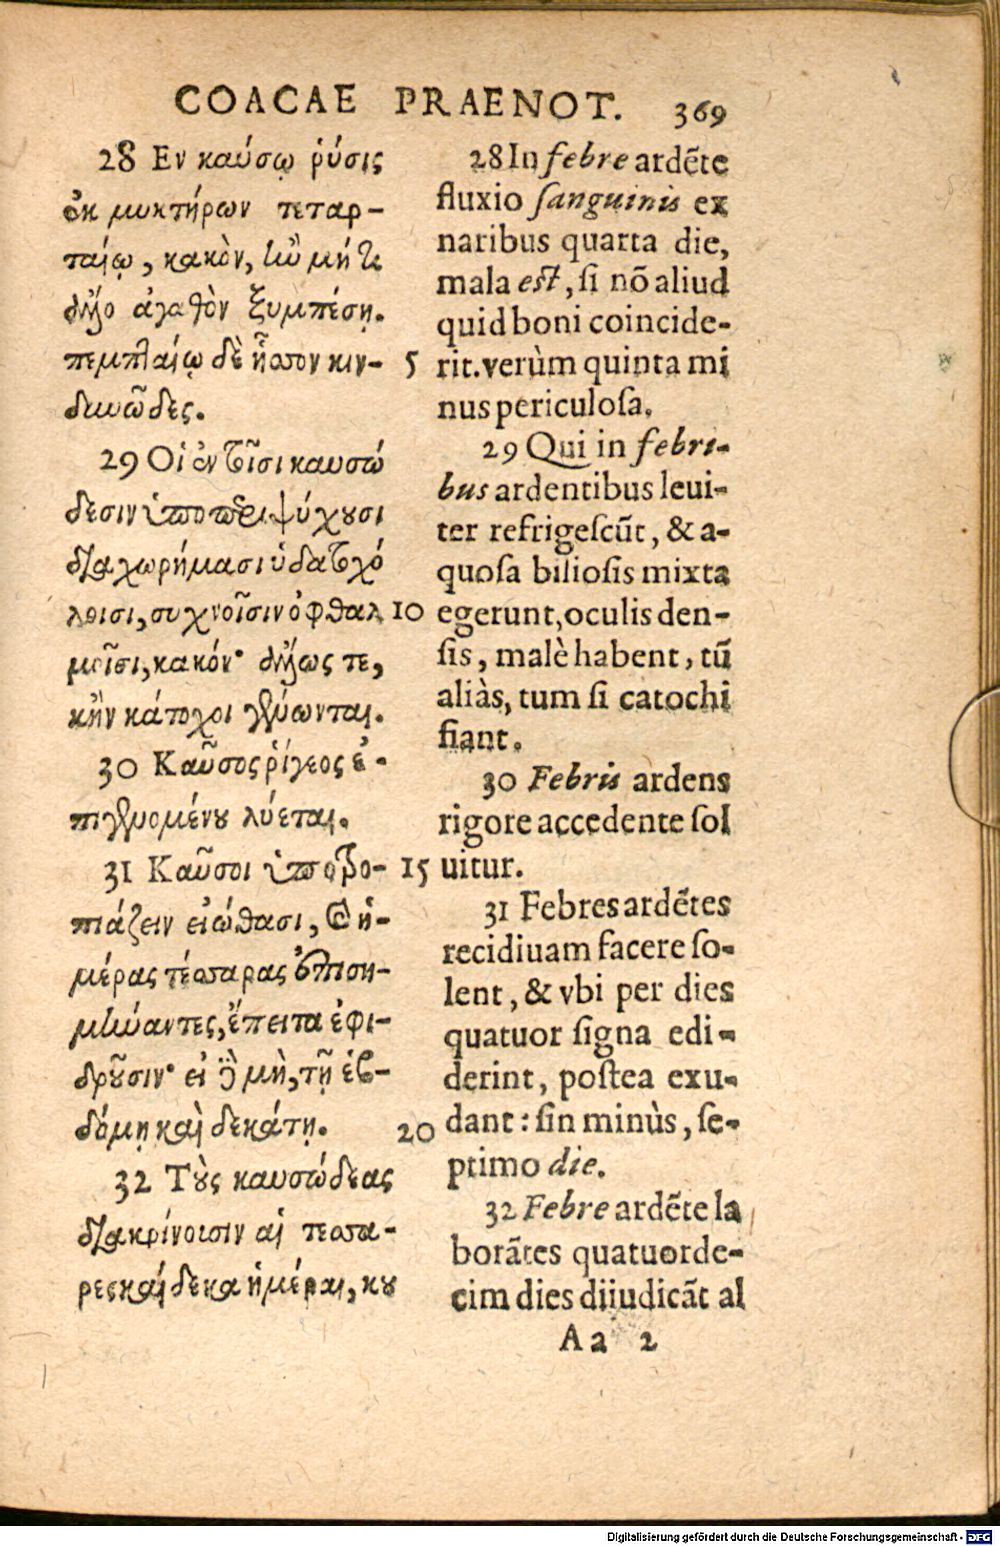 COACAE PRAENOT. 369
28 Εν καύσῳ ῥύσις
ἐκ μυκτήρων τεταρ-
ταίῳ, κακὸν, ἢν μή τι
ἄλλο ἀγαθὸν ξυμπέσῃ.
πεμπταίῳ δὲ ἧσσον κιν-
δυνῶδες.
29 Οἱ ἐν τοῖσι καυσώ
δεσιν ὑποπεριψύχουσι
διαχωρήμασι ὑδατοχό
λοισι, συχνοῖσιν ὀφθαλ
μοῖσι, κακόν·
κἢν κάτοχοι γένωνται.
30 Καῦσος ῥίγεος ἐ-
πιγενομένου λύεται.
31 Καῦσοι ὑποτρο-
πιάζειν εἰώθασι, καὶ ἡ-
μέρας τέσσαρας ἐπιση-
μήναντες, ἔπειτα ἐφι-
δροῦσιν· εἰ δὲ μὴ, τῇ ἑβ-
δόμῃ καὶ δεκάτῃ.
32 Τοὺς καυσώδεας
διακρίνουσιν αἱ τεσσα-
ρεσκαίδεκα ἡμέραι, κου
5
10
15
20
28 In febre ardẽte
fluxio ſanguinis ex
naribus quarta die,
mala eſt, ſi nõ aliud
quid boni coincide-
rit. verùm quinta mi
nus periculoſa.
29 Qui in febri-
bus ardentibus leui-
ter refrigeſcũt, & a-
quoſa bilioſis mixta
egerunt, oculis den-
ſis, malè habent, tũ
aliàs, tum ſi catochi
fiant.
30 Febris ardens
rigore accedente ſol
uitur.
31 Febres ardẽtes
recidiuam facere ſo-
lent, & vbi per dies
quatuor ſigna edi-
derint, poſtea exu-
dant: ſin minùs, ſe-
ptimo die.
32 Febre ardẽte la
borãtes quatuorde-
cim dies diiudicãt al
Aa 2
Digitalisierung gefördert durch die Deutsche Forschungsgemeinschaft - DFG